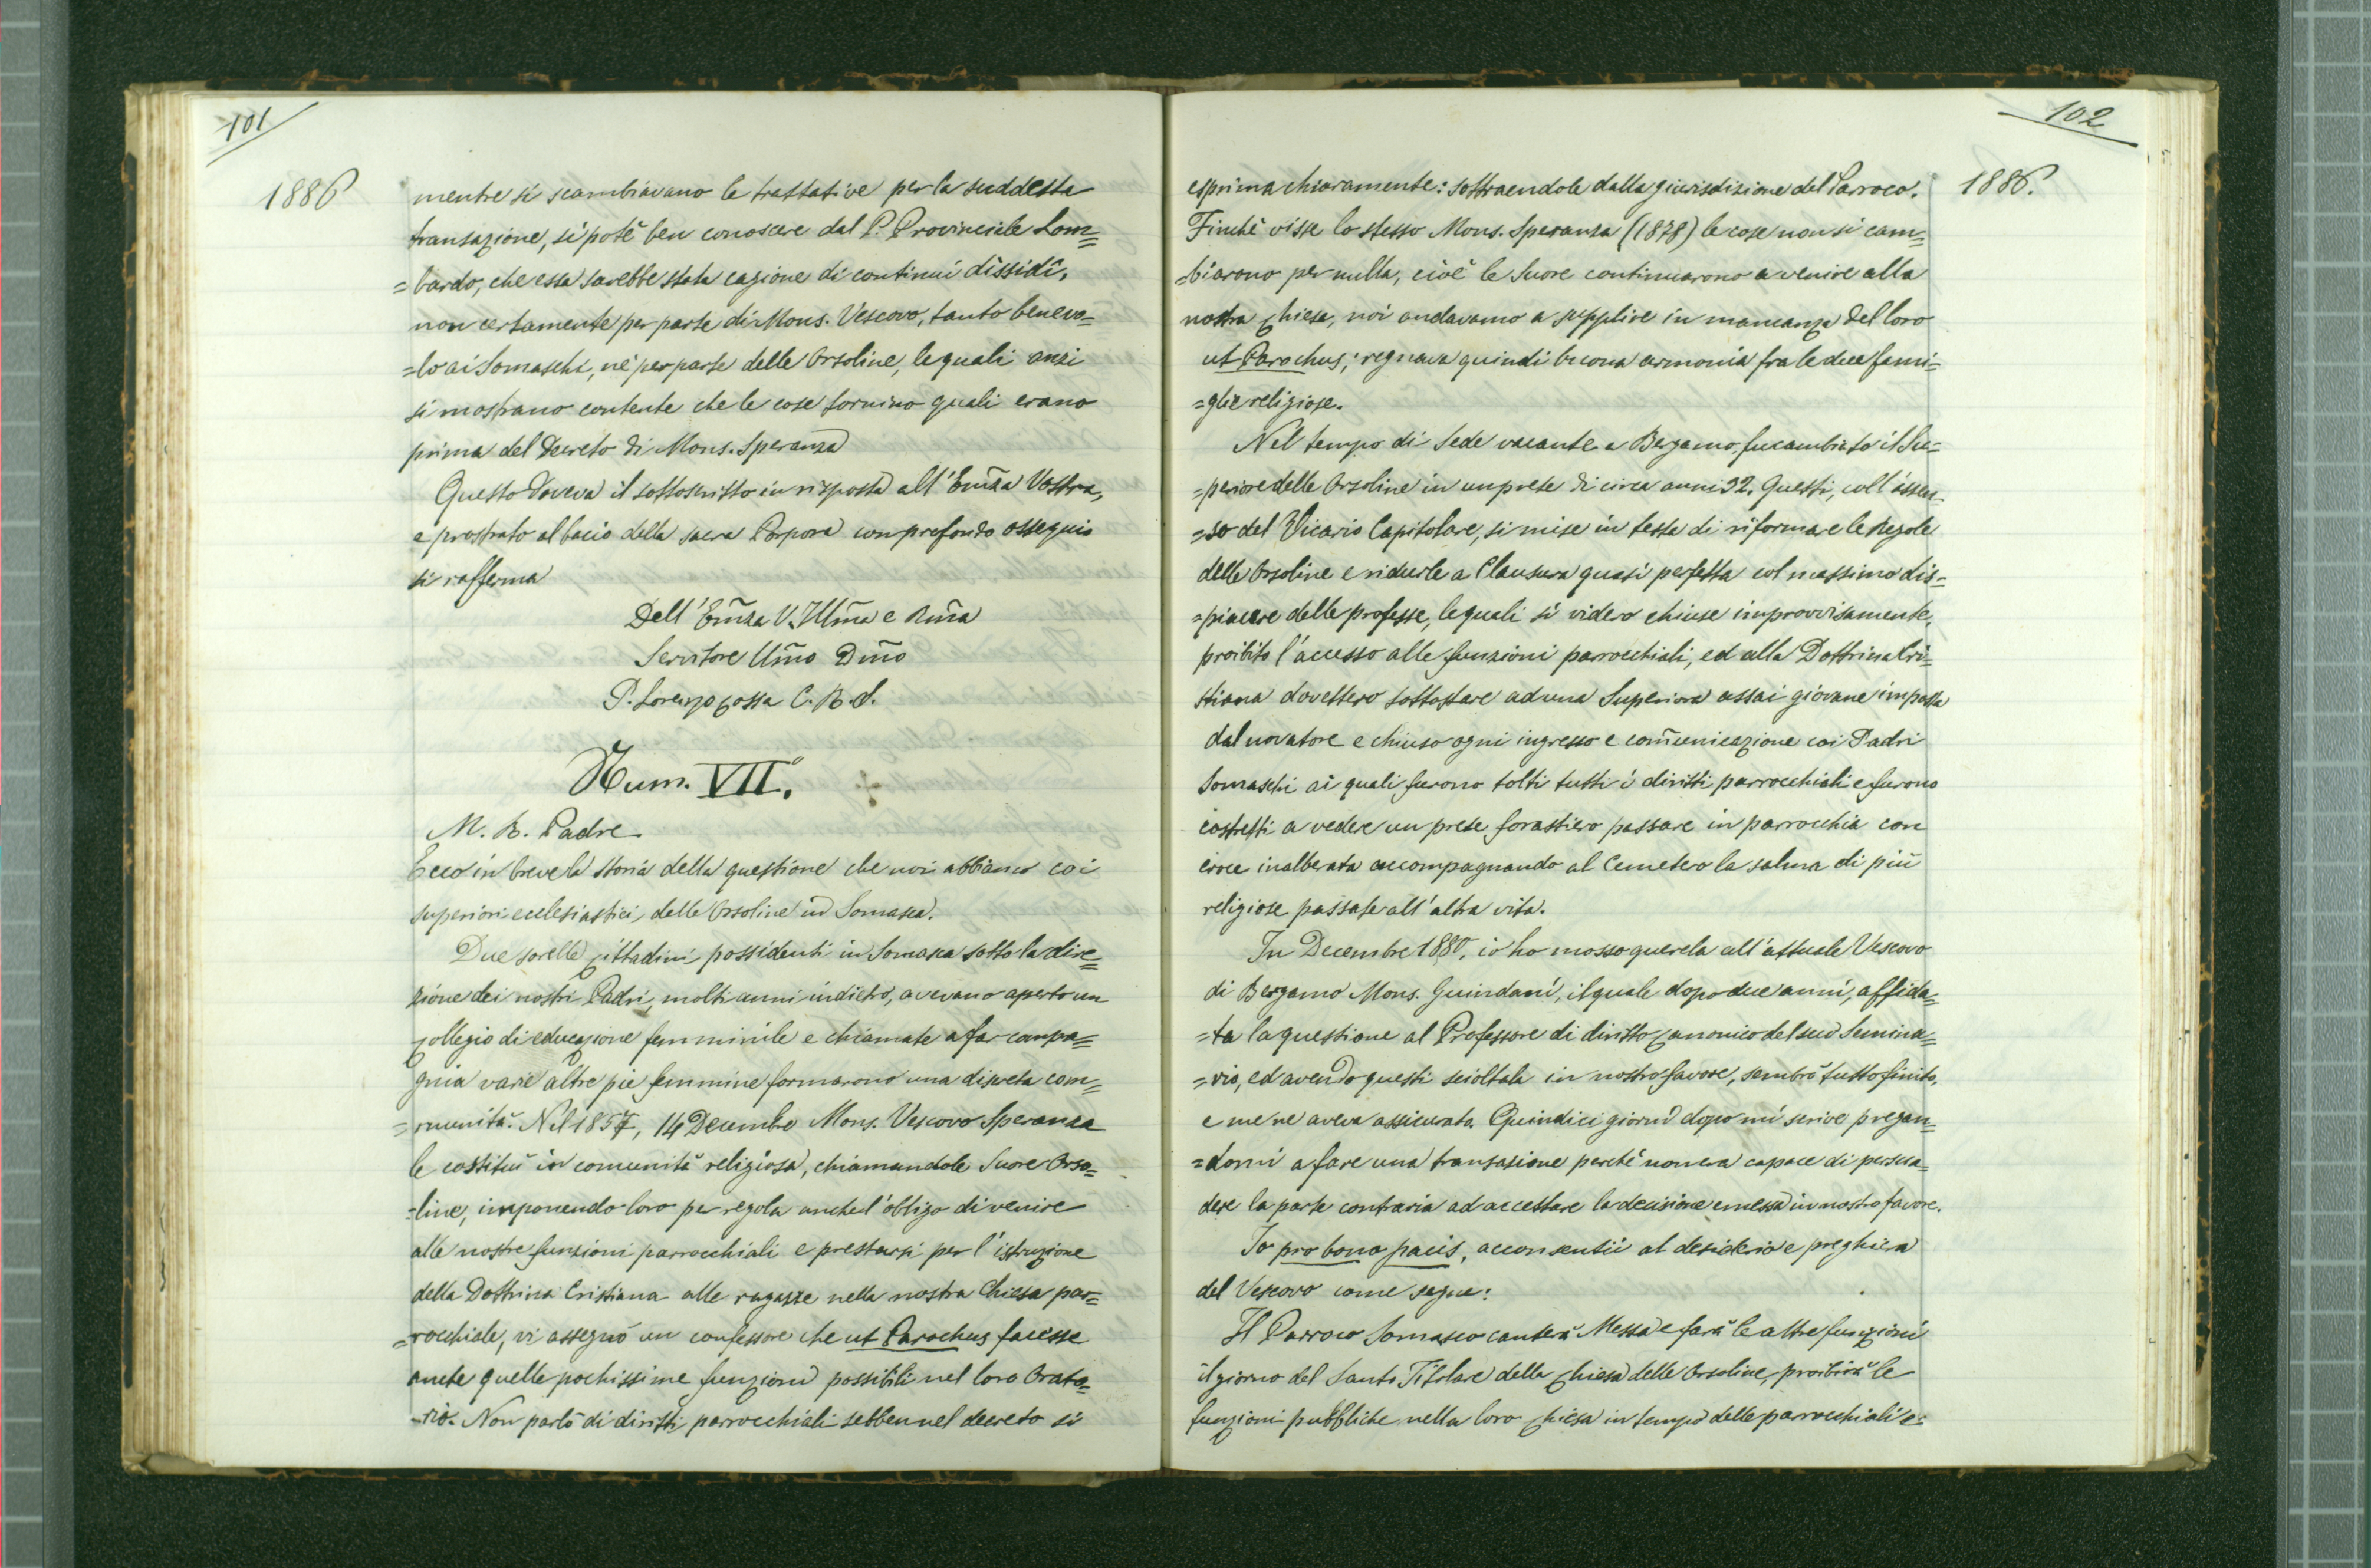 101
1886
mentre si scambiavano le trattative per la suddetta
transazione, si potè ben conoscere dal P. Provinciale Lom=
=bardo, che essa sarebbe stata cagione di continui dissidi,
non certamente per parte di Mons. Vescovo, tanto benevo=
=lo ai Somaschi, nè per parte delle Orsoline, le quali anzi
si mostrano contente che le cose tornino quali erano
prima del Decreto di Mons. Speranza
Questo doveva il sottoscritto in risposta all'Em̃za Vostra,
e prostrato al bacio della sacra Porpora con profondo ossequio
si rafferma
Dell'Em̃za V. Illm̃a e Rm̃a
Servitore Um̃o Dm̃o
P. Lorenzo Cossa C. R. S.
Num. VII.º
M. R. Padre
Ecco in breve la storia della questione che noi abbiamo coi
superiori ecclesiastici delle Orsoline in Somasca.
Due sorelle Cittadini possidenti in Somasca sotto la dire=
zione dei nostri Padri, molti anni indietro, avevano aperto un
Collegio di educazione femminile e chiamate a far compa=
gnia varie altre pie femmine formarono una discreta com=
=munità. Nel 1857, 14 Decembre Mons. Vescovo Speranza
le costituì in comunità religiosa, chiamandole Suore Orso=
=line, imponendo loro per regola anche l'obbligo di venire
alle nostre funzioni parrocchiali e prestarsi per l'istruzione
della Dottrina Cristiana alle ragazze nella nostra Chiesa par=
=rocchiale, vi assegnò un confessore che ut Parochus facesse
anche quelle pochissime funzioni possibili nel loro Orato=
=rio. Non parlò di diritti parrocchiali sebben nel decreto si
102
1886.
esprima chiaramente: sottraendole dalla giurisdizione del Parroco.
Finchè visse lo stesso Mons. Speranza (1878) le cose non si cam=
=biarono per nulla, cioè le Suore continuarono a venire alla
nostra Chiesa, noi andavamo a supplire in mancanza del loro
ut Parochus; regnava quindi buona armonia fra le due fami=
=glie religiose.
Nel tempo di Sede vacante a Bergamo fu cambiato il Su=
=periore delle Orsoline in un prete di circa anni 32. Questi, coll'assen=
=so del Vicario Capitolare, si mise in testa di riformare le Regole
delle Orsoline e ridurle a Clausura quasi perfetta col massimo dis=
=piacere delle professe, le quali si videro chiuse improvvisamente,
proibito l'accesso alle funzioni parrocchiali, ed alla Dottrina Cri=
stiana dovettero sottostare ad una Superiora assai giovane imposta
dal novatore e chiuso ogni ingresso e com̃unicazione coi Padri
Somaschi ai quali furono tolti tutti i diritti parrocchiali e furono
costretti a vedere un prete forastiero passare in parrocchia con
croce inalberata accompagnando al Cemetero la salma di più
religiose passate all'altra vita.
In Decembre 1880, io ho mosso querela all'attuale Vescovo
di Bergamo Mons. Guindani, il quale dopo due anni, affida=
=ta la questione al Professore di diritto Canonico del suo Semina=
=rio, ed avendo questi sciolta in nostro favore, sembrò tutto finito,
e me ne aveva assicurato. Quindici giorni dopo mi scrive pregan=
=domi a fare una transazione perchè non era capace di persua=
dere la parte contraria ad accettare la decisione emessa in nostro favore.
Io pro bono pacis, acconsentii al desiderio e preghiera
del Vescovo come segue:
Il Parroco Somasco canterà Messa e farà le altre funzioni
il giorno del Santo Titolare della Chiesa delle Orsoline, proibirà le
funzioni pubbliche nella loro Chiesa in tempo delle parrocchiali e: